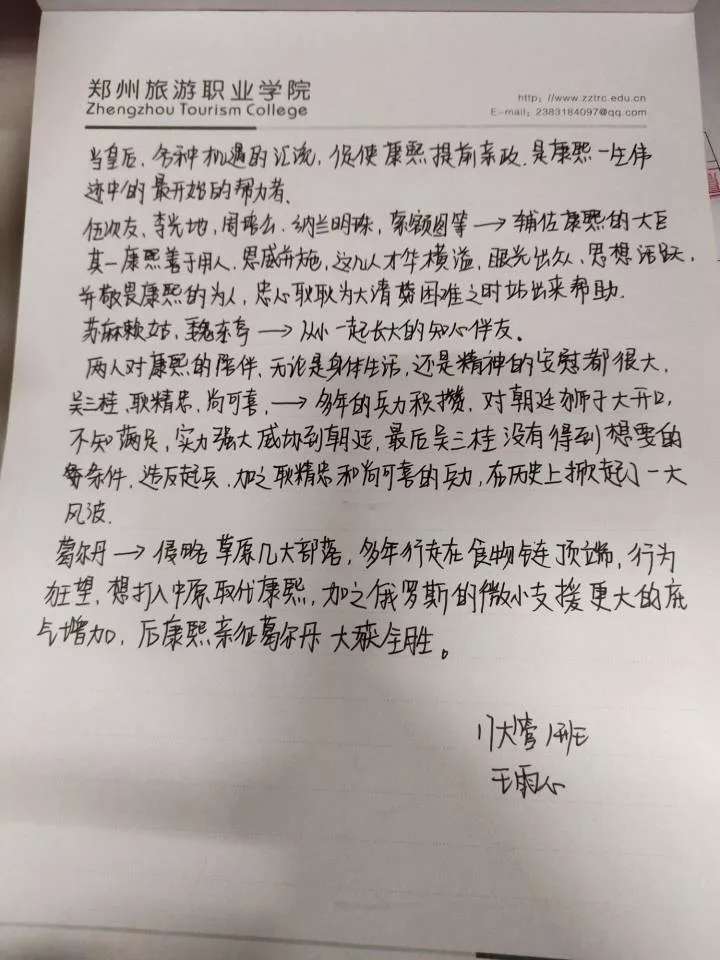 郑州旅游职业学院
Zhengzhou Tourism College
http://www.zztrc.edu.cn
E-mail: 2383184097@qq.com
当皇后、各种机遇的汇流，促使康熙提前亲政，是康熙一生伟
迹中的最开始的帮力者。
伍次友、李光地、周培公、纳兰明珠、索额图等→辅佐康熙的大臣
其一康熙善于用人、恩威并施，这几人才华横溢，眼光出众、思想活跃，
并敬畏康熙的为人，忠心耿耿为大清 困难之时站出来帮助.
苏麻赖姑、魏东亭→从小一起长大的知心伴友。
两人对康熙的陪伴、无论是身体生活，还是精神的安慰都很大，
吴三桂、耿精忠、尚可喜，→多年的兵力积攒，对朝廷狮子大开口，
不知满足，实力强大威协到朝廷，最后吴三桂没有得到想要的
条件，造反起兵.加之耿精忠和尚可喜的兵力，在历史上掀起了一大
风波.
葛尔丹→侵略草原几大部落，多年行走在食物链顶端，行为
狂望，想打入中原取代康熙，加之俄罗斯的微小支援更大的底
气增加，后康熙亲征葛尔丹大获全胜。
班
王雨心